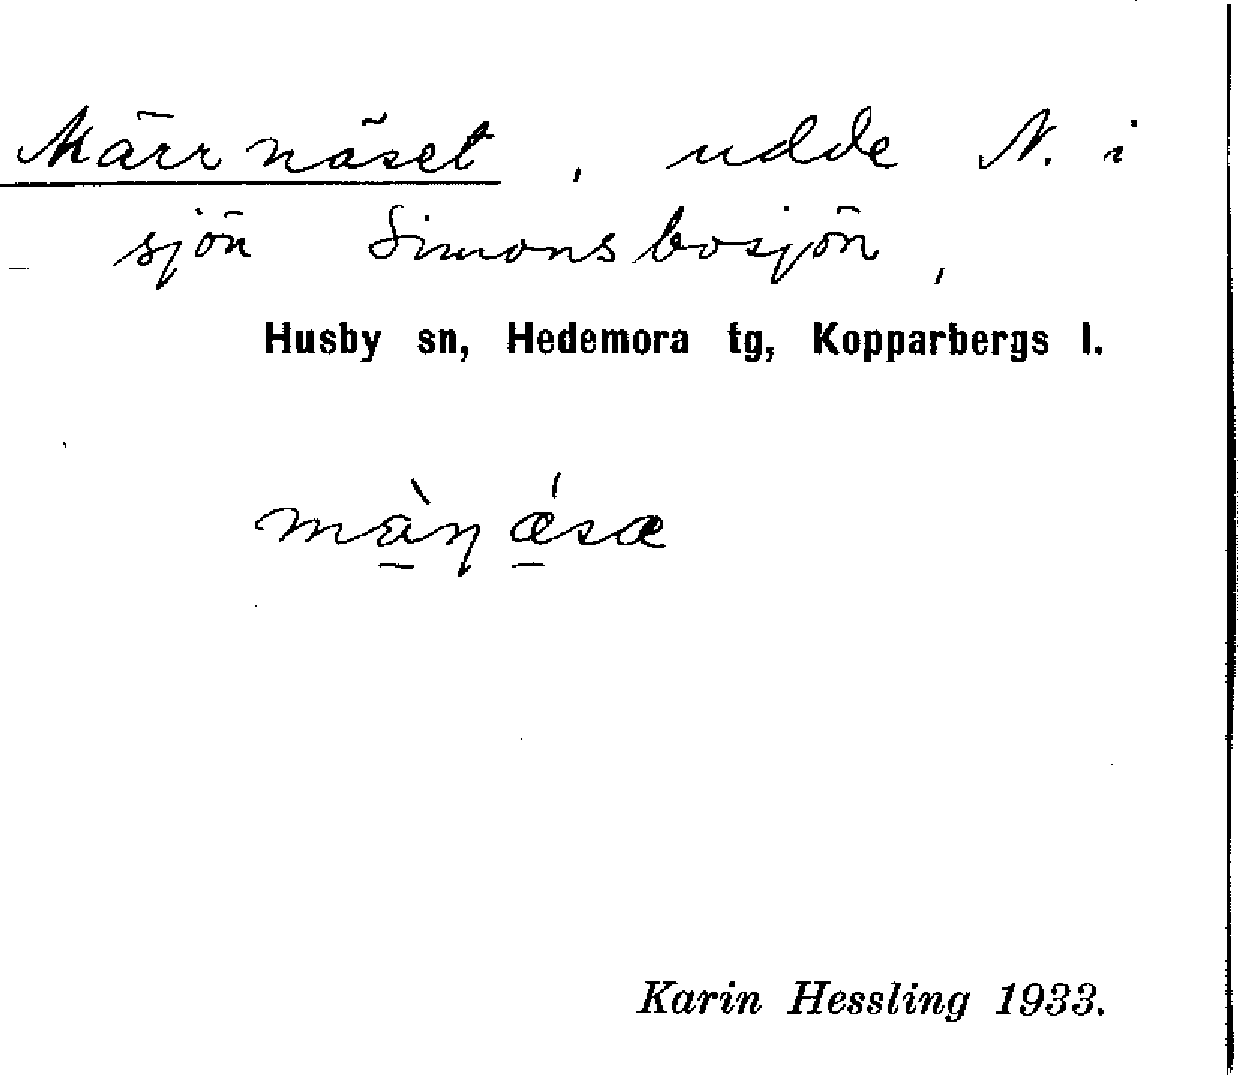 Märrnäset, udde N. i
sjön Simonsbosjön,
Husby sn, Hedemora tg, Kopparbergs l.
Karin Hessling 1933.